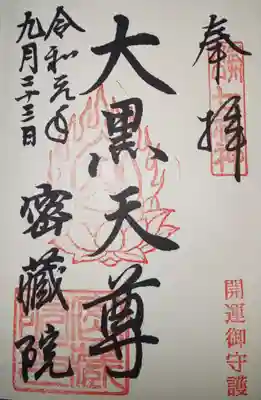 奉拝
開運御守護
大黒天尊
令和元年
九月二十三日
密蔵院